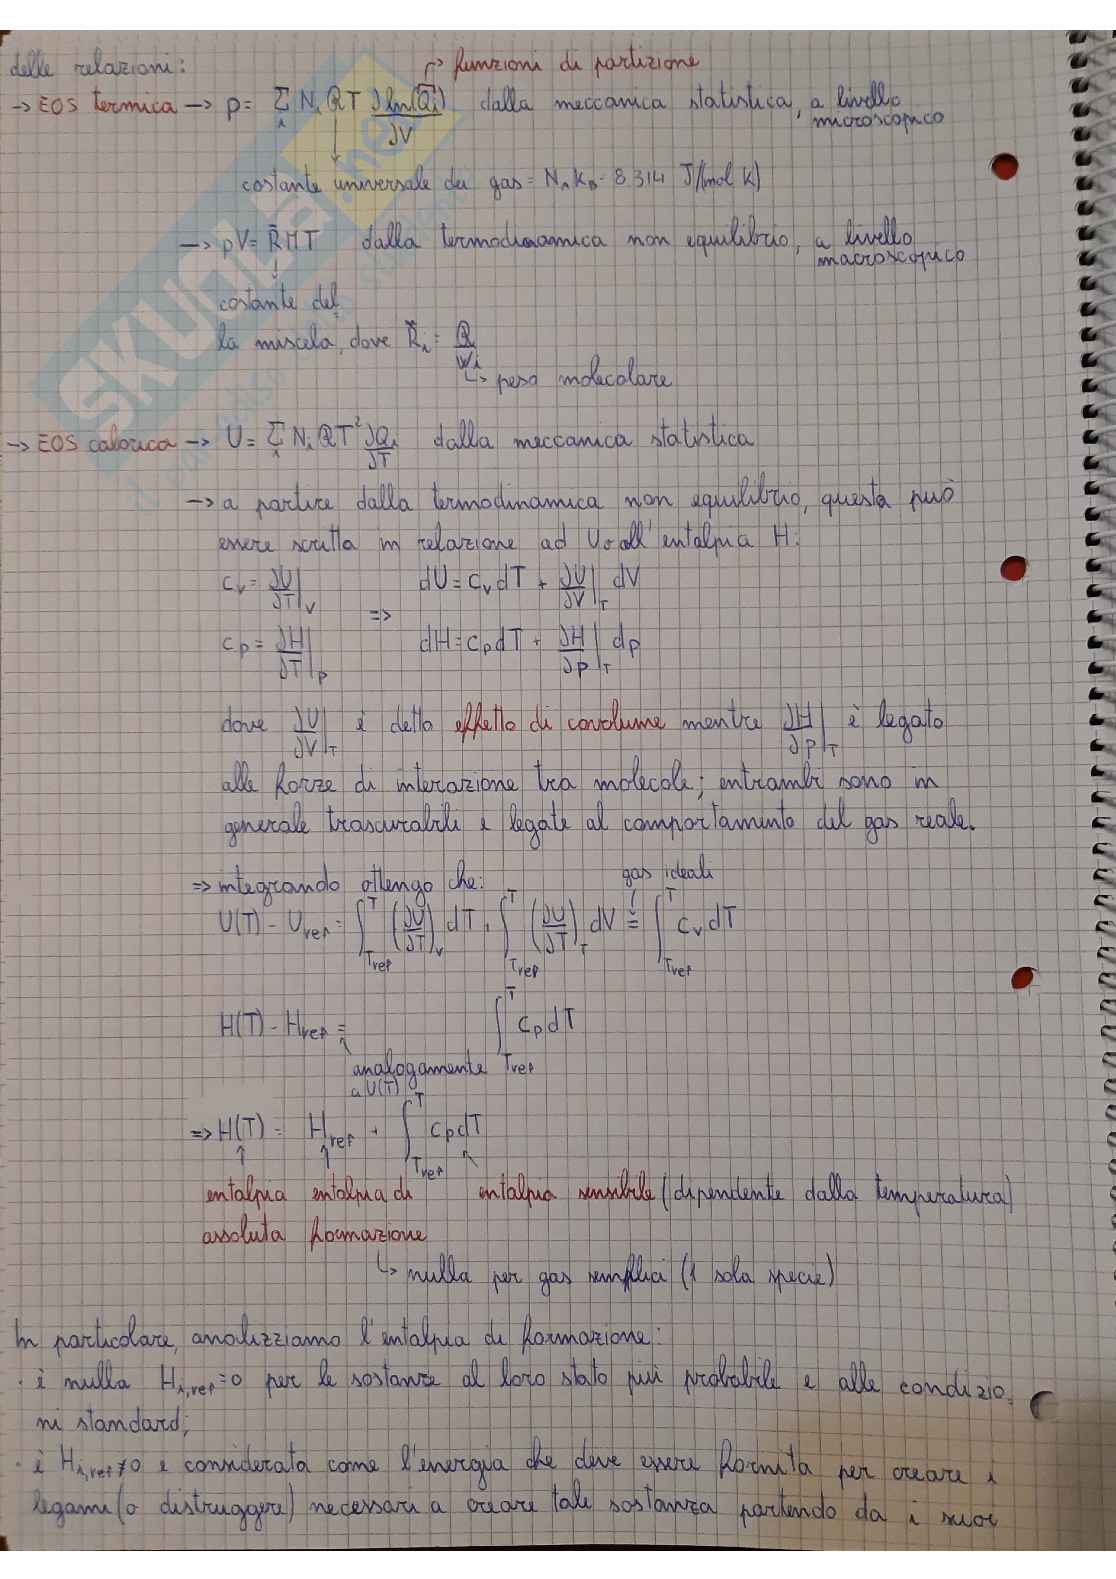 delle relazioni:
↱ funzioni di partizione
→ EOS termica → p = Σ_i N_i ℛT ∂ln(Q_i)/∂V dalla meccanica statistica, a livello
microscopico
costante universale dei gas = N_A k_B = 8.314 J/(mol K)
→ pV = R̄MT dalla termodinamica non equilibrio, a livello
macroscopico
costante del
la miscela, dove R̄_i = ℛ/W_i
↳ peso molecolare
→ EOS calorica → U = Σ_i N_i ℛT² ∂Q_i/∂T dalla meccanica statistica
→ a partire dalla termodinamica non equilibrio, questa può
essere scritta in relazione ad U o all'entalpia H:
c_v = ∂U/∂T|_V dU = c_v dT + ∂U/∂V|_T dV
=>
c_p = ∂H/∂T|_p dH = c_p dT + ∂H/∂p|_T dp
dove ∂U/∂V|_T è detto effetto di covolume mentre ∂H/∂p|_T è legato
alle forze di interazione tra molecole; entrambi sono in
generale trascurabili e legate al comportamento del gas reale.
=> integrando ottengo che: gas ideali
U(T) - U_ref = ∫_{T_ref}^{T} (∂U/∂T)_V dT + ∫_{T_ref}^{T} (∂U/∂T)_T dV = ∫_{T_ref}^{T} c_v dT
H(T) - H_ref = ∫_{T_ref}^{T} c_p dT
analogamente
a U(T)
=> H(T) = H_ref + ∫_{T_ref}^{T} c_p dT
entalpia entalpia di entalpia sensibile (dipendente dalla temperatura)
assoluta formazione
↳ nulla per gas semplici (1 sola specie)
In particolare, analizziamo l'entalpia di formazione:
· è nulla H_i,ref = 0 per le sostanze al loro stato più probabile e alle condizio
ni standard;
· è H_i,ref ≠ 0 e considerata come l'energia che deve essere fornita per creare i
legami (o distruggere) necessari a creare tale sostanza partendo da i suoi
SKUOLA.net